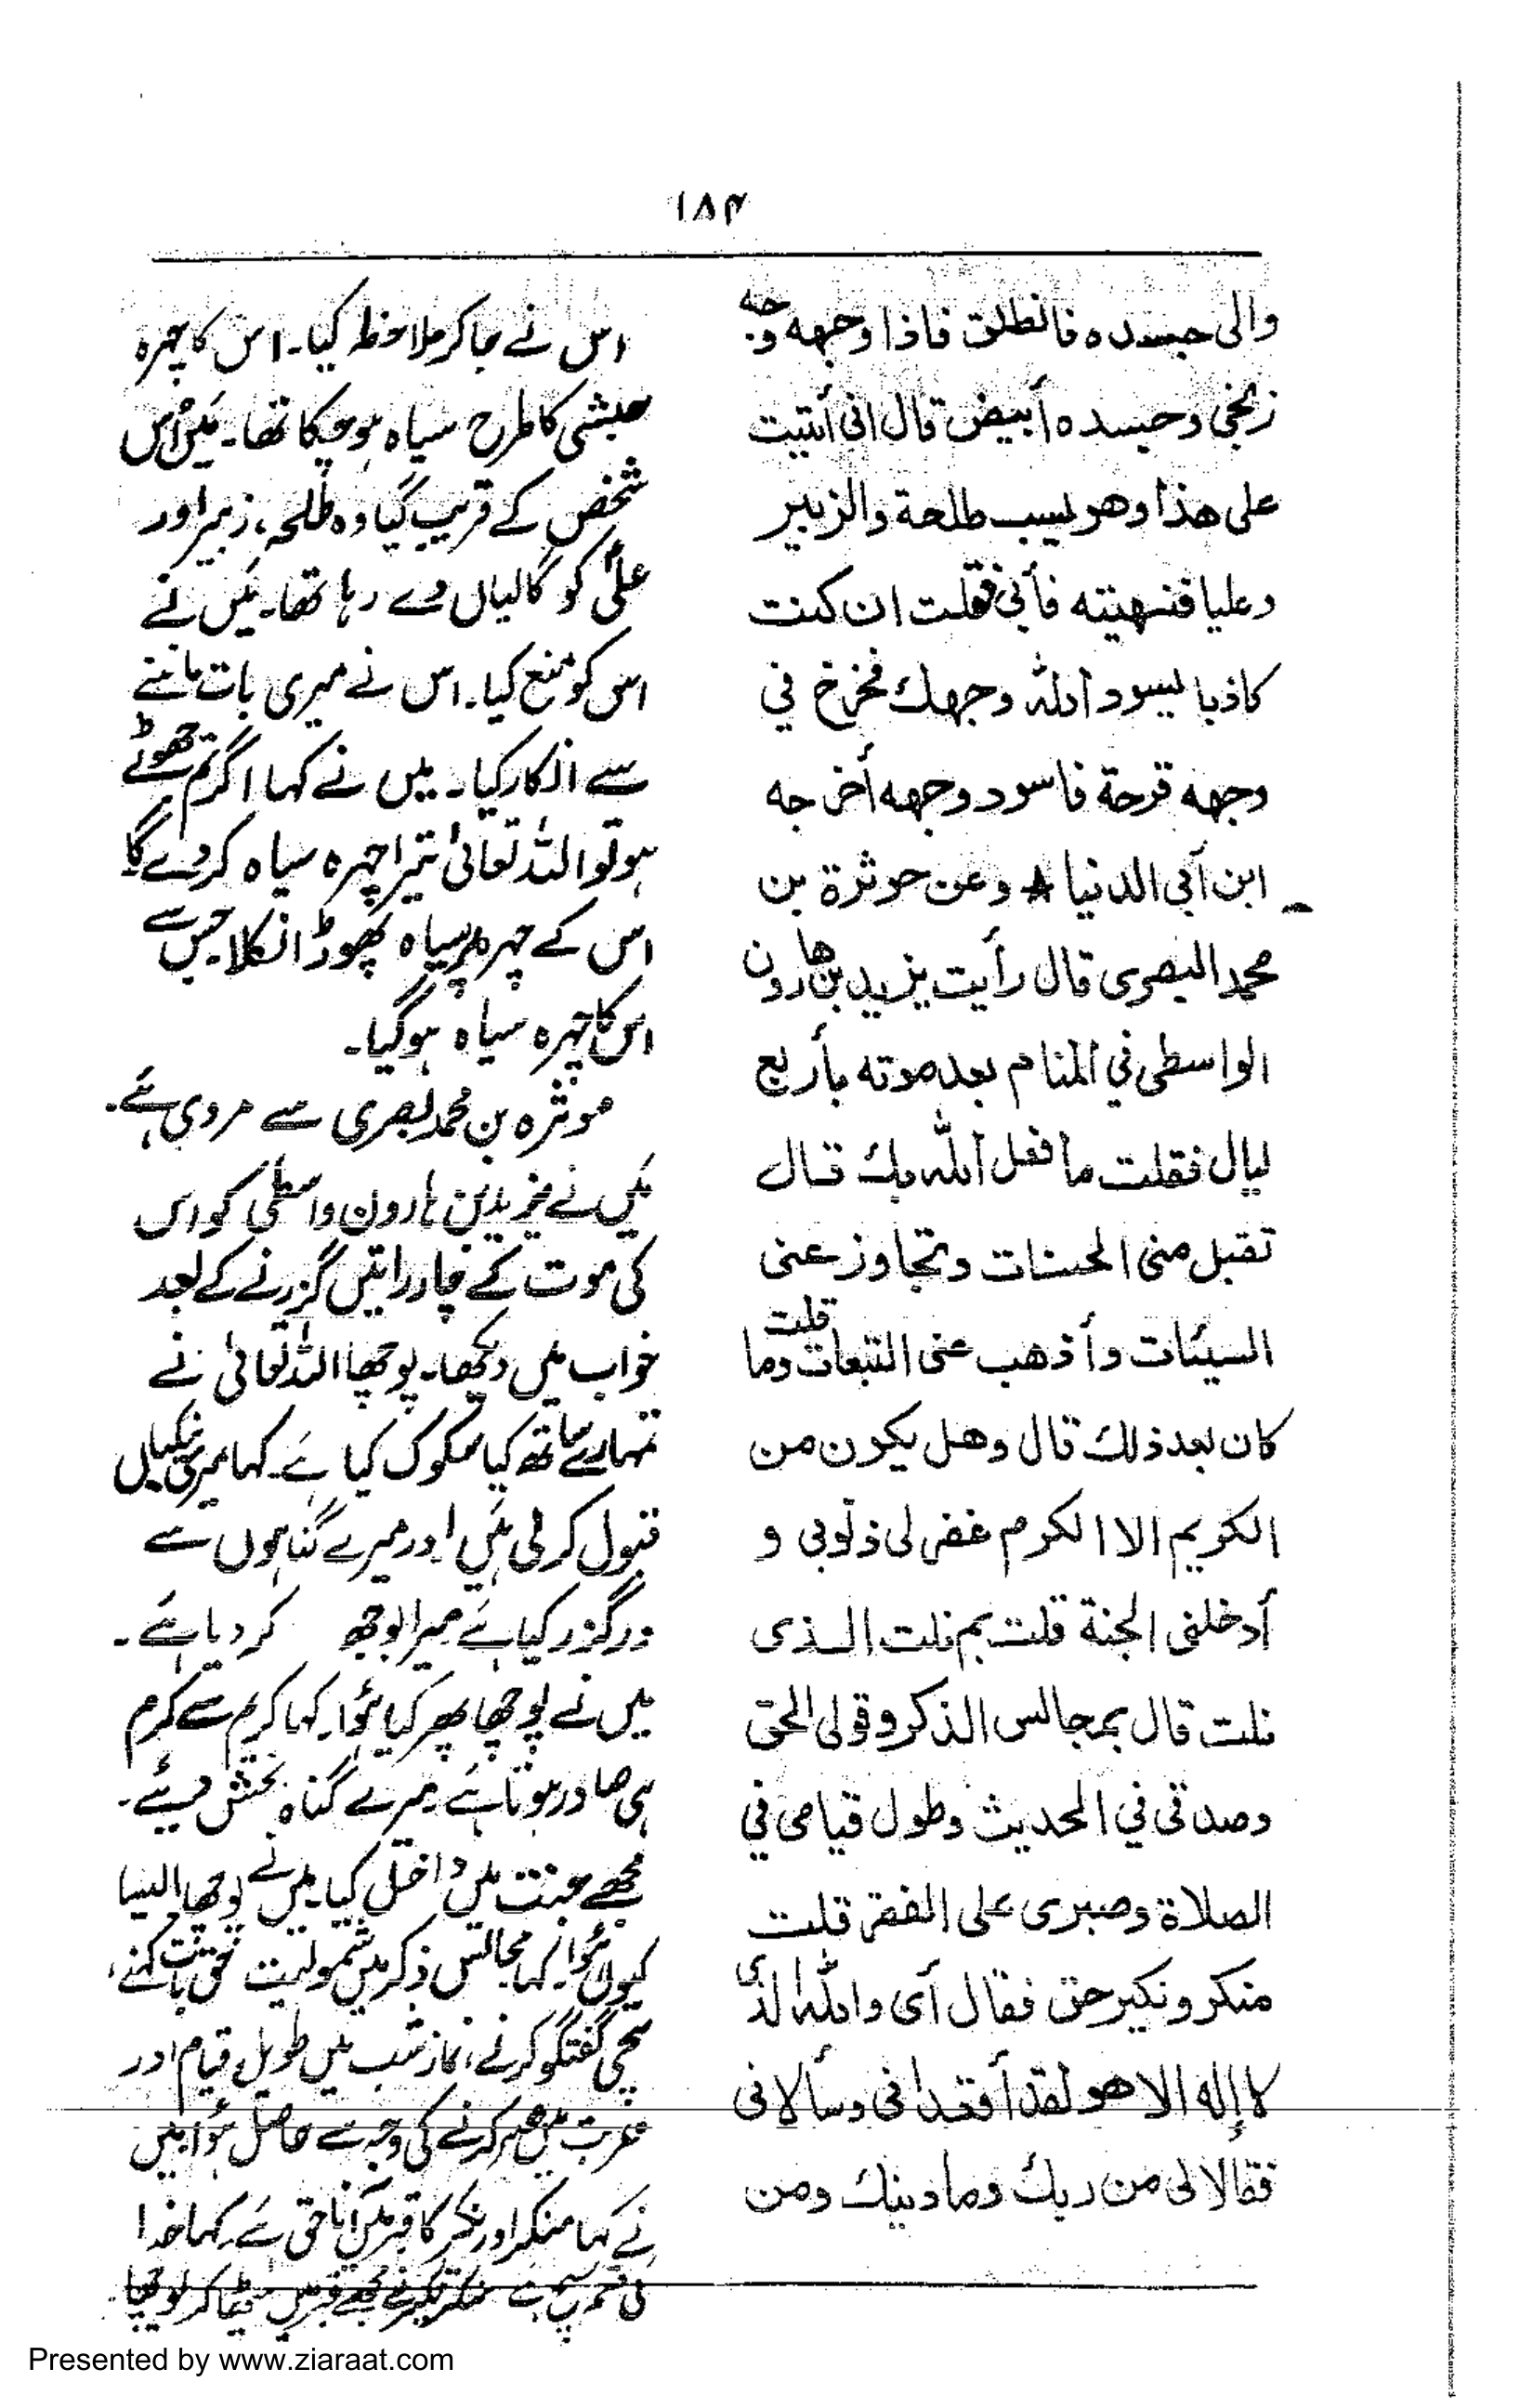 ۱۸۴
والى جسده فانطلق فاذا وجهه وجه
زنجى وجسده أبيض قال انى أتيت
على هذا وهو يسب طلحة والزبير
وعليا فنهيته فأبى فقلت ان كنت
كاذبا يسود الله وجهك فخرج في
وجهه قرحة فاسود وجهه أخرجه
ابن أبي الدنيا * وعن حوثرة بن
محمد البصرى قال رأيت يزيد بن هارون
الواسطى في المنام بعد موته بأربع
ليال فقلت ما فعل الله بك قال
تقبل منى الحسنات وتجاوز عنى
السيئات وأذهب عنى التبعات قلت وما
كان بعد ذلك قال وهل يكون من
الكريم الا الكرم غفر لى ذنوبى و
أدخلنى الجنة قلت بم نلت الذى
نلت قال بمجالس الذكر وقولى الحق
وصدقى في الحديث وطول قيامى في
الصلاة وصبرى على الفقر قلت
منكر ونكير حق فقال أى والله الذى
لا إله الا هو لقد أقعدانى وسألانى
فقالا لى من ربك وما دينك ومن
اس نے جا کر ملاحظہ کیا۔ اس کا چہرہ
حبشی کا طرح سیاہ ہو چکا تھا۔ میں اُس
شخص کے قریب گیا وہ طلحہ، زبیر اور
علیؑ کو گالیاں دے رہا تھا۔ میں نے
اس کو منع کیا۔ اس نے میری بات ماننے
سے انکار کیا۔ میں نے کہا اگر تم جھوٹے
ہو تو اللہ تعالیٰ تیرا چہرہ سیاہ کر دے گا
اس کے چہرہ پر سیاہ پھوڑا نکلا جس سے
اس کا چہرہ سیاہ ہو گیا۔
موثرہ بن محمد بصری سے مروی ہے۔
میں نے یزید بن ہارون واسطی کو اس
کی موت کے چار راتیں گزرنے کے بعد
خواب میں دیکھا۔ پوچھا اللہ تعالیٰ نے
تمہارے ساتھ کیا سلوک کیا ہے۔ کہا میری نیکیاں
قبول کر لی ہیں اور میرے گناہوں سے
درگزر کیا ہے میرا بوجھ کر دیا ہے۔
میں نے پوچھا پھر کیا ہُوا۔ کہا کرم سے کرم
ہی صادر ہوتا ہے۔ میرے گناہ بخش دیئے۔
مجھے جنت میں داخل کیا۔ میں نے پوچھا ایسا
کیوں ہُوا۔ کہا مجالس ذکر میں شمولیت حق بات کہنے،
سچی گفتگو کرنے، نماز شب میں طویل قیام اور
غربت میں صبر کرنے کی وجہ سے حاصل ہُوا۔ میں
نے کہا منکر اور نکیر کا قبر میں آنا حق ہے۔ کہا خدا
کی قسم سچ ہے منکر نکیر نے مجھے قبر میں بٹھا کر پوچھا
Presented by www.ziaraat.com